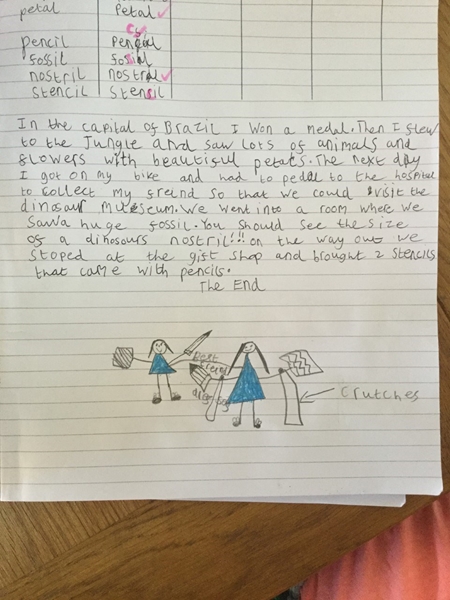 petal petal
pencil pencial
fossil fosial
nostril nostral
stencil stensil
In the capital of Brazil I won a medal. Then I flew
to the Jungle and saw lots of animals and
flowers with beautiful petals. The next day
I got on my bike and had to pedal to the hospital
to collect my freind so that we could visit the
dinosaur museum. We went into a room where we
saw a huge fossil. You should see the size
of a dinosours nostril!!! on the way out we
stoped at the gift shop and brought 2 stencils
that came with pencils.
The End
best
freind
crutches